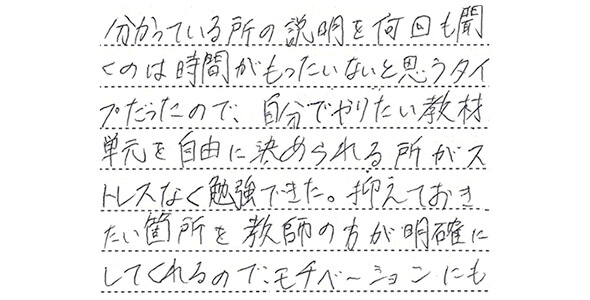 分かっている所の説明を何回も聞
くのは時間がもったいないと思うタイ
プだったので、自分でやりたい教材
単元を自由に決められる所がス
トレスなく勉強できた。抑えておき
たい箇所を教師の方が明確に
してくれるので、モチベーションにも